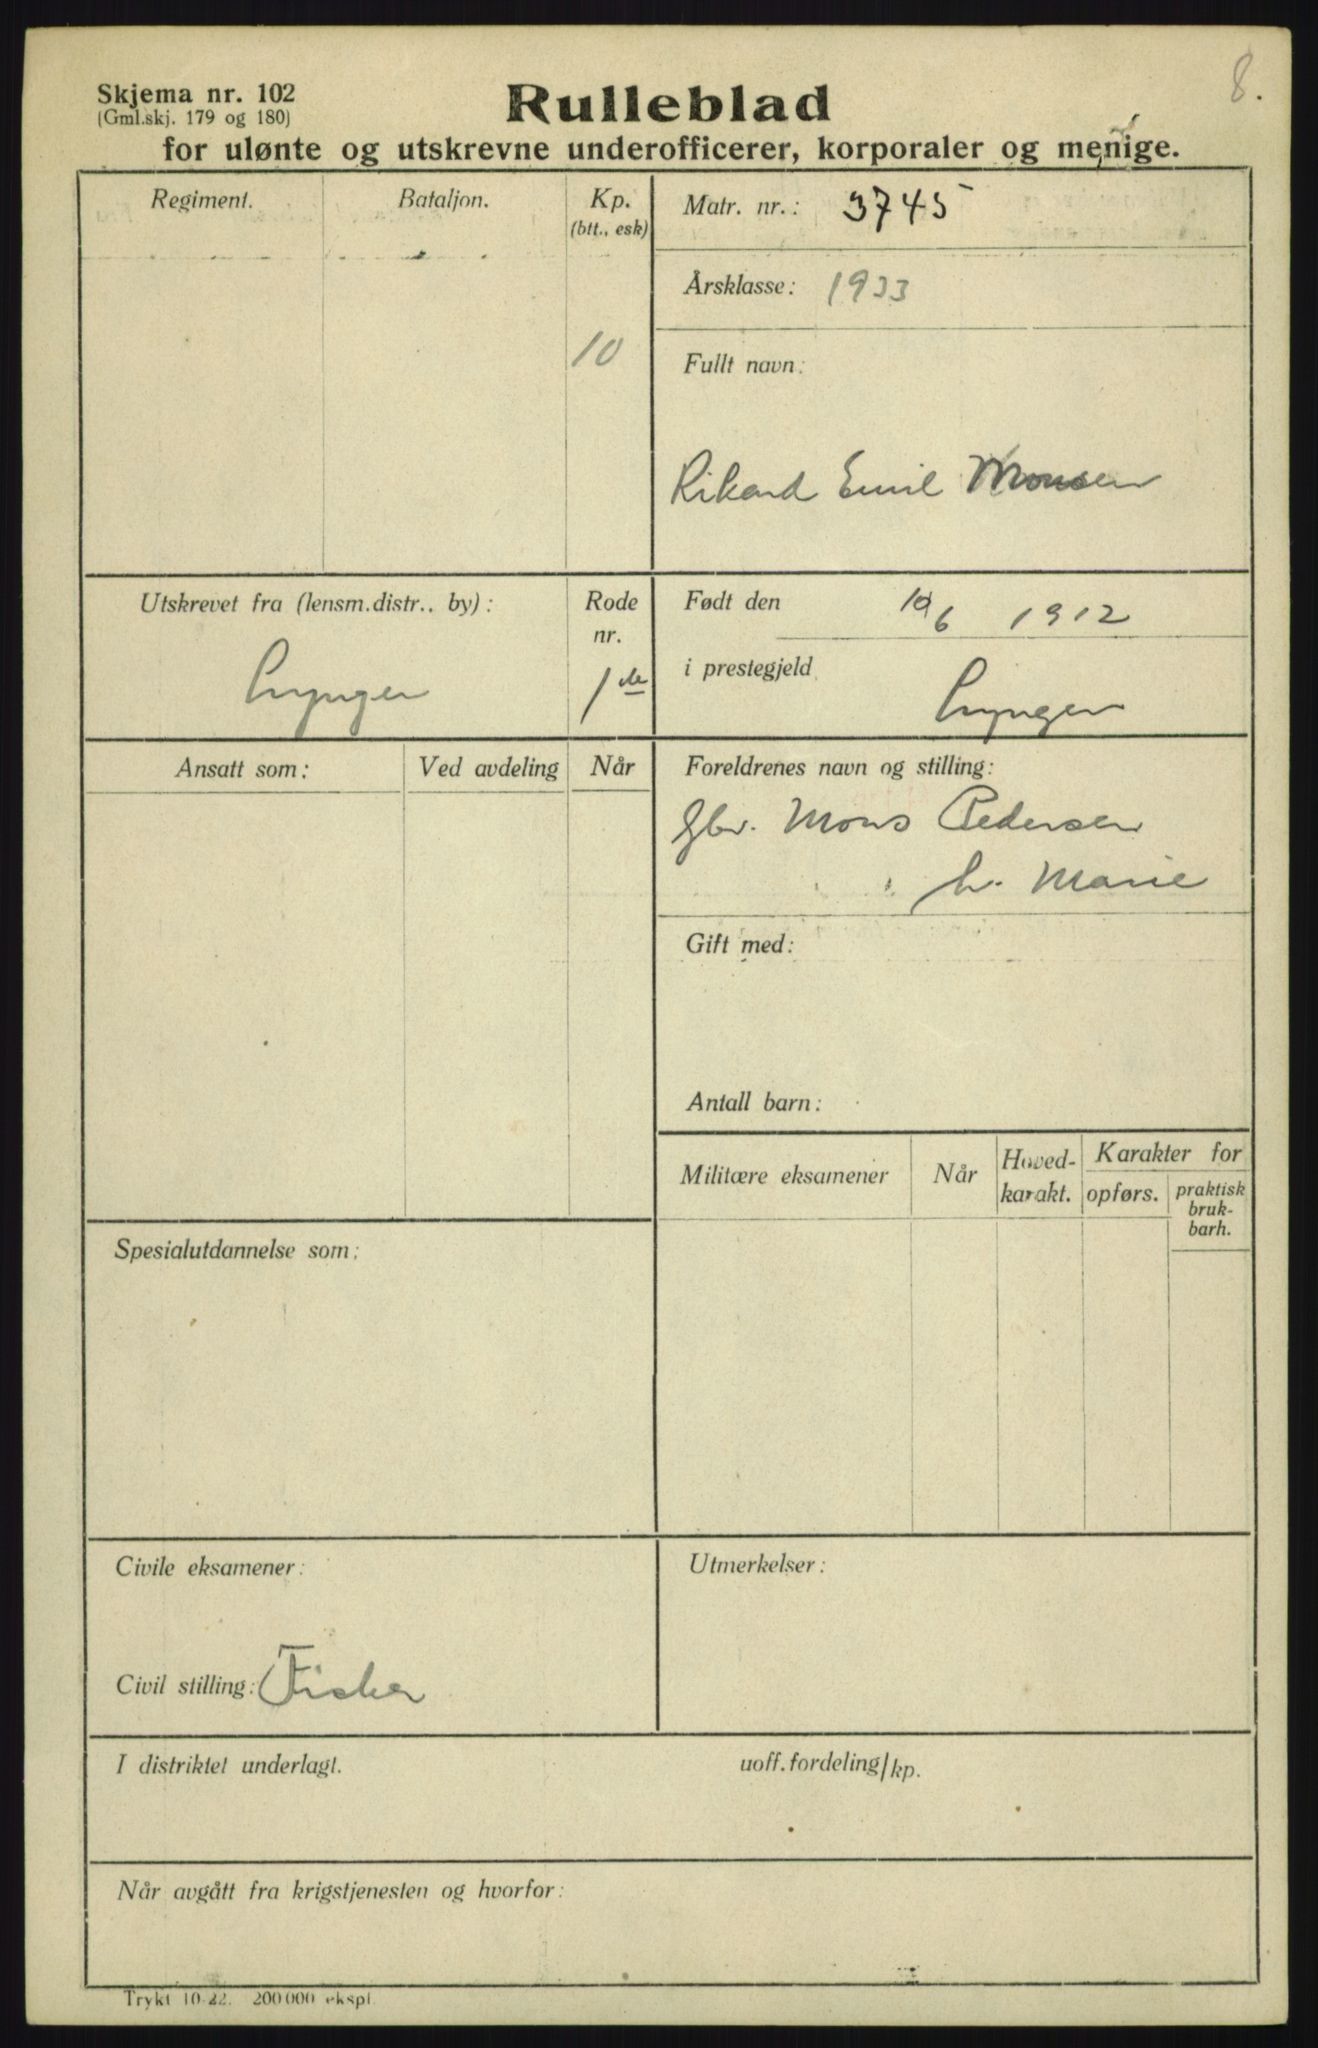 8.
Skjema nr. 102
(Gml.skj. 179 og 180)
Rulleblad
for ulønte og utskrevne underofficerer, korporaler og menige.
Regiment.
Bataljon.
Kp.
(btt., esk)
10
Matr. nr.: 3745
Årsklasse: 1933
Fullt navn:
Rikard Emil Monsen
Utskrevet fra (lensm.distr.. by):
Lyngen
Rode
nr.
1de
Født den 10/6 1912
i prestegjeld
Lyngen
Ansatt som:
Ved avdeling
Når
Foreldrenes navn og stilling:
Gbr. Mons Pedersen
h. Marie
Gift med:
Antall barn:
Militære eksamener
Når
Hoved-
karakt.
Karakter for
opførs.
praktisk
bruk-
barh.
Spesialutdannelse som:
Civile eksamener:
Civil stilling: Fisker
Utmerkelser:
I distriktet underlagt.
uoff.fordeling/kp.
Når avgått fra krigstjenesten og hvorfor:
Trykt 10-22. 200000 ekspl.